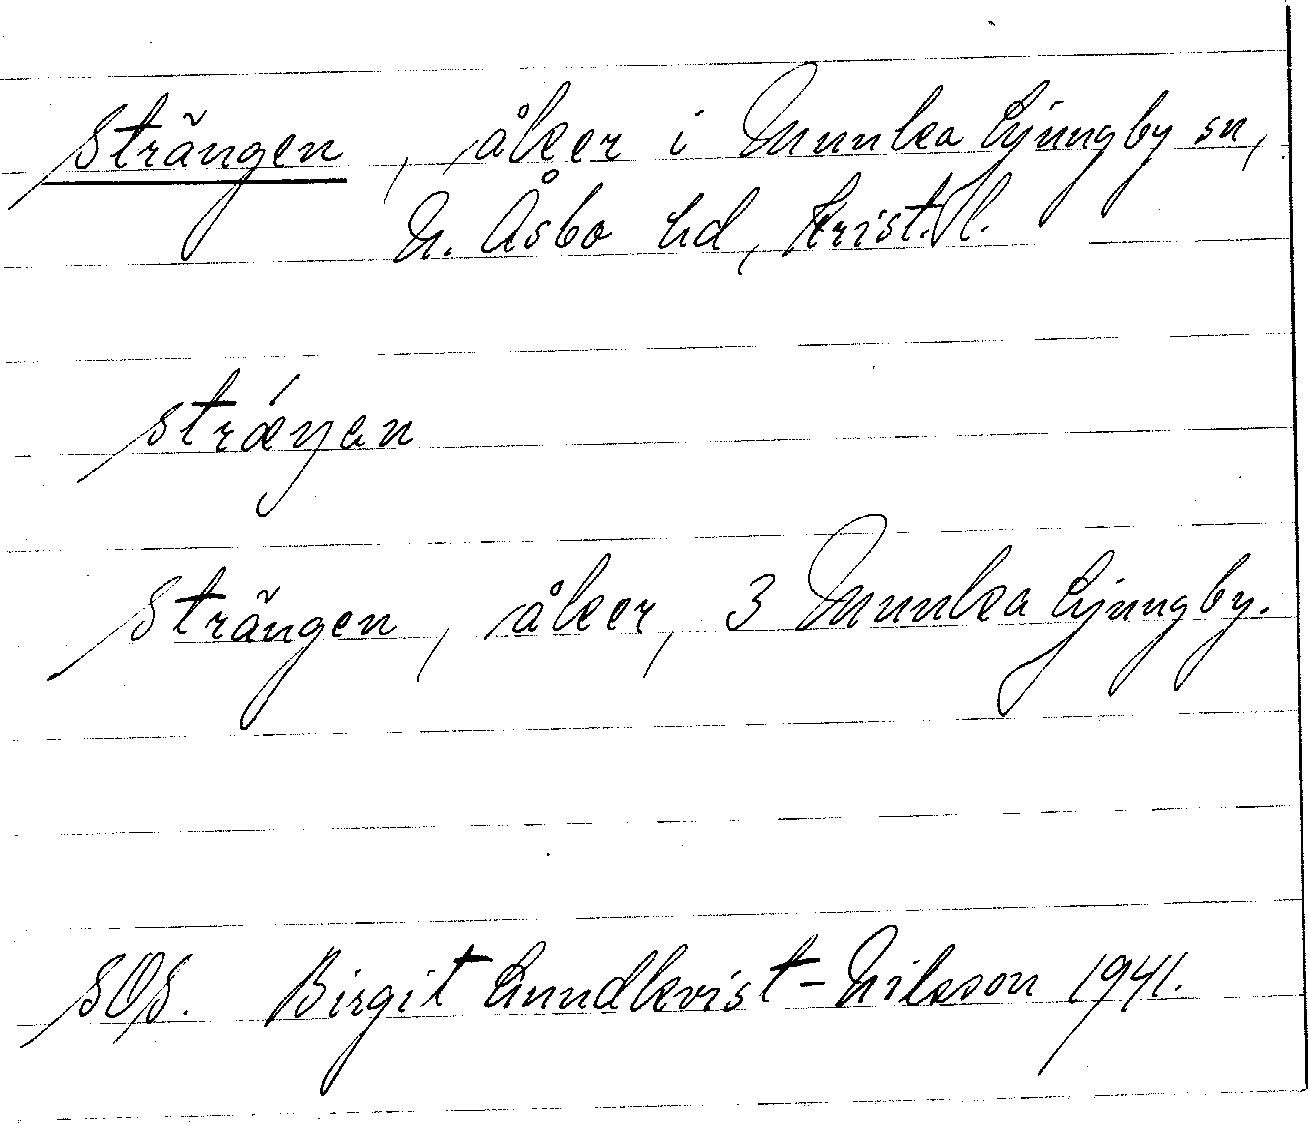 Strängen, åker i Munka Ljungby sn,
N. Åsbo hd, Krist. l.
stræ´ŋan
Strängen, åker, 3 Munka Ljungby.
SOS. Birgit Lundkvist-Nilsson 1941.